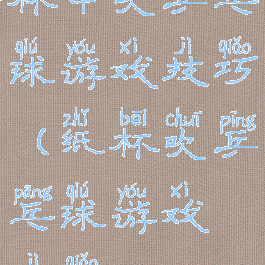 qiú yóu xì jì qiǎo
球游戏技巧
zhǐ bēi chuī pīng
（纸杯吹乒
pāng qiú yóu xì
乓球游戏
jì qiǎo